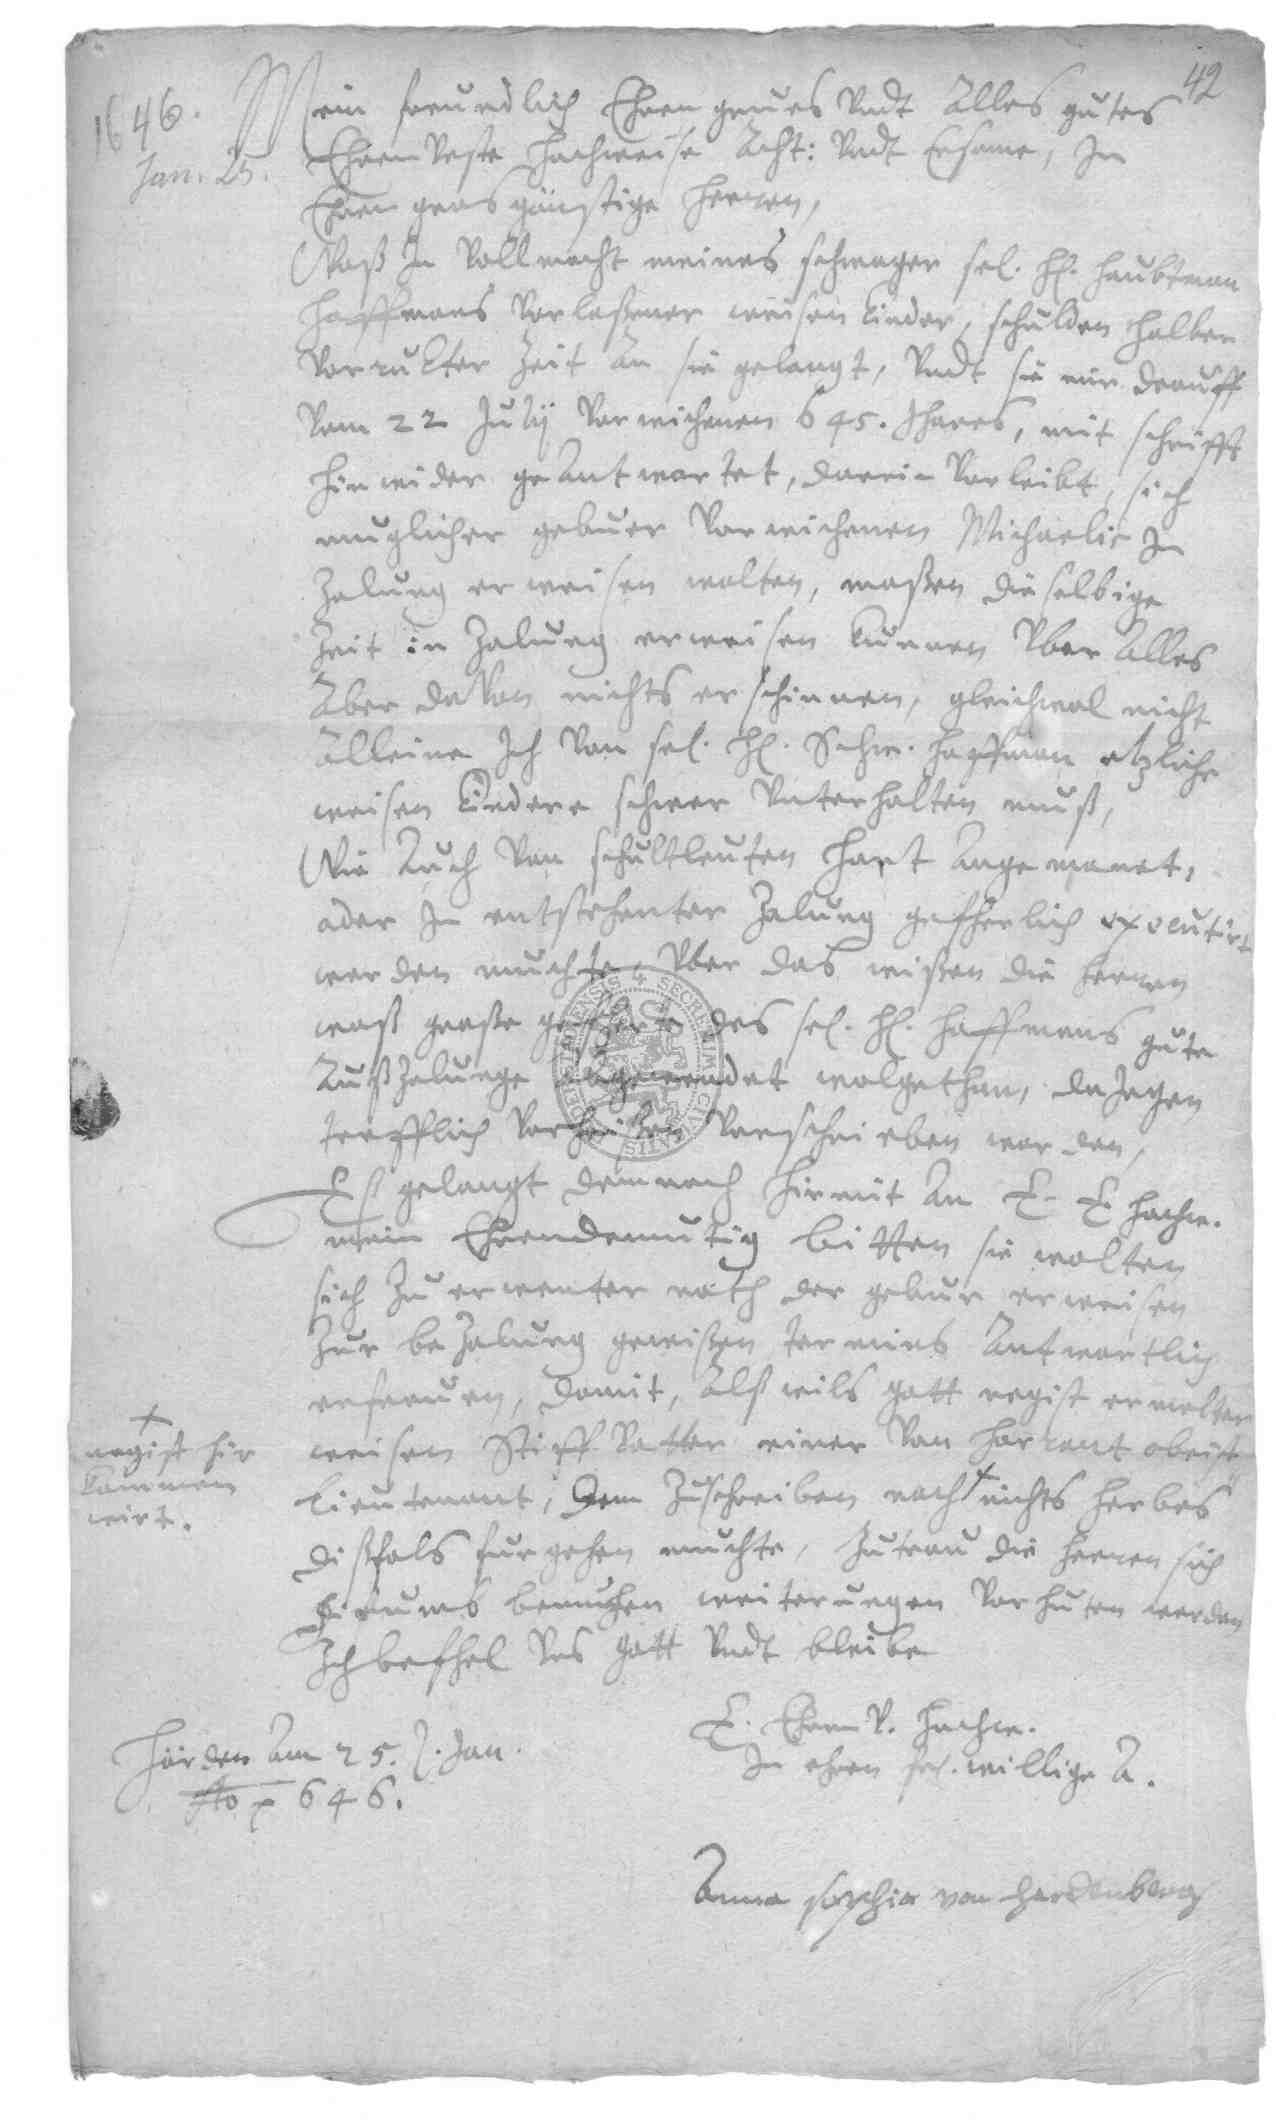 42
1646.
Jan. 25.
Mein freundlich Ehren grues Vndt Alles gutes
Ehrenveste Hochweise Acht: Vndt Ersame, In
Ehren grosgünstige Herren,
Waß In Vollmacht meines schwager sel. H. Haubtman
Hoffmans Vorlaßener weisen Kinder, schulden halber
Vorruckter Zeit An sie gelangt, Vndt sie mir drauff
Vom 22 July Vorwichenen 645. Jhares, mit schrifft
hinwider geAntwortet, darein Vorleibt, sich
muglicher gebuer Vorwichenen Michaelis In
Zalung erweisen wolten, maßen dieselbige
Zeit in Zalung erweisen kunnen Vber Alles
Aber daVon nichts erschinnen, gleichwol nicht
Alleine Ich Von sel. H. Schw. Hoffman etzliche
weisen Kindere schwer Vnterhalten muß,
Wie Auch Von schultleuten hart Angemanet,
oder In entstehenter Zalung gefherlich executirt
werden muchte, Vber das wißen die Herren
waß große des sel. H. Hoffmans gute
Außzalunge Angewendet wolgethan, dajegen
trefflich Vorheißen Vorschrieben worden,
Eß gelangt demnach hirmit An E. E Hochw.
mein Ehrendemutig bitten sie wolten
sich Zu erwenter nach der gebuer erweisen
Zur beZalung gewißen termins Antwortlich
erfreuen, domit, Alß wils gott negist ermelter
weisen Stiff Vatter einer Von Horrant obrister
Lieutenant, Dem Zuschreiben nach + nichts herbes
dißfals furgehen muchte, Zutrau die Herren sich
hirums bemuhen weiterungen Vorhuten werden
Ich befhel Vns Gott Vndt bleibe
+
negist hir
kommen
wirt.
E. Ehrn V. Hochw.
In ehren fr. willige A.
Hörden Am 25. Jan.
Ao 646.
Anna sophia von Hardenberg